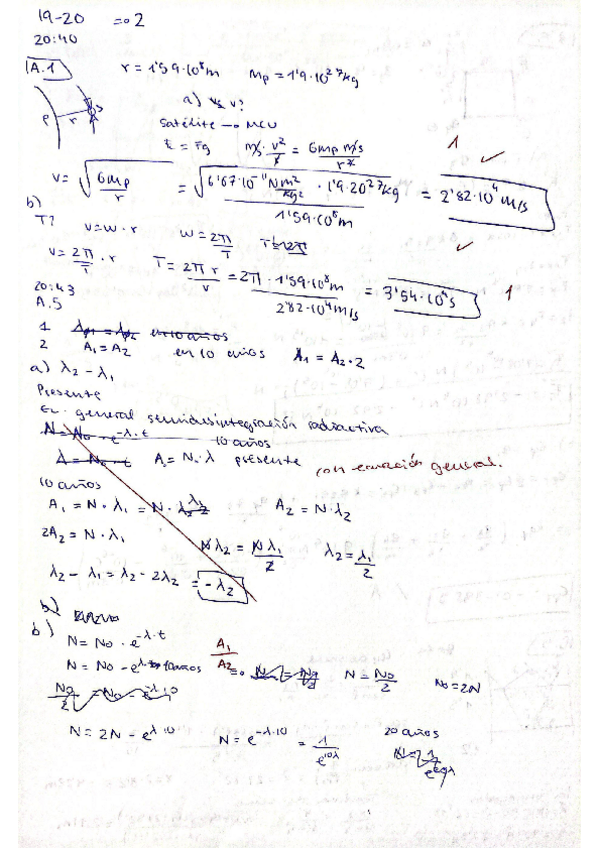 19-20 => 2
20:40
A.1 r = 1'59·10⁸m Mp = 1'9·10²⁷kg
a) v?
P r S
Satélite → MCU
1
F = Fg m · v²/r = G mp ms/r²
v = √(Gmp/r) = √(6'67·10⁻¹¹ N m²/kg² · 1'9·20²⁷kg / 1'59·10⁸m) = 2'82·10⁴ m/s
b)
T? v = w·r w = 2π/T
v = 2π/T · r T = 2π r/v = 2π · 1'59·10⁸m / 2'82·10⁴m/s = 3'54·10⁴s 1
20:43
A.5
1 en 10 años
2 A₁ = A₂ en 10 años A₁ = A₂·2
a) λ₂ - λ₁
Presente
Ec. general semidesintegración radiactiva
N = No · e^-λ·t 10 años
λ = No · t A = N·λ presente con ecuación general.
10 años
A₁ = N·λ₁ = N·λ₂ A₂ = N·λ₂
2A₂ = N·λ₁ Nλ₂ = Nλ₁/2 λ₂ = λ₁/2
λ₂ - λ₁ = λ₂ - 2λ₂ = -λ₂
b)
b)
N = No · e^-λ·t A₁/A₂
N = No - e^-λ·10años N = No/2 No = 2N
No/2 = No - e^-λ·10
N = 2N - e^λ·10 N = e^-λ·10 = 1/e^10λ 20 años